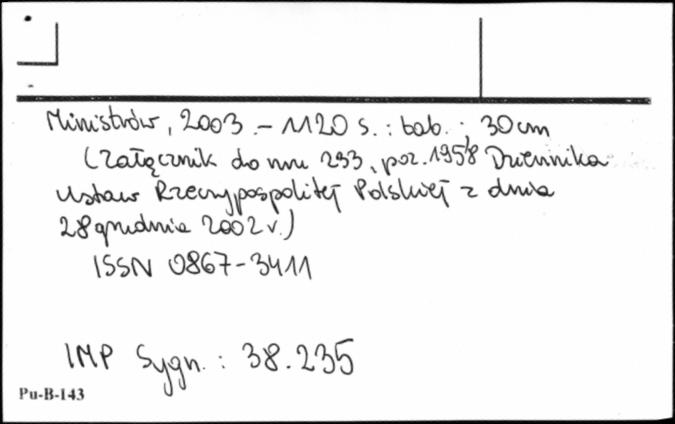 Ministrów, 2003. - 1120 s. : tab. ; 30 cm
(Załącznik do nru 233, poz. 1958 Dziennika
Ustaw Rzeczypospolitej Polskiej z dnia
28 grudnia 2002 r.)
ISSN 0867-3411
IMP Sygn. : 38.235
Pu-B-143